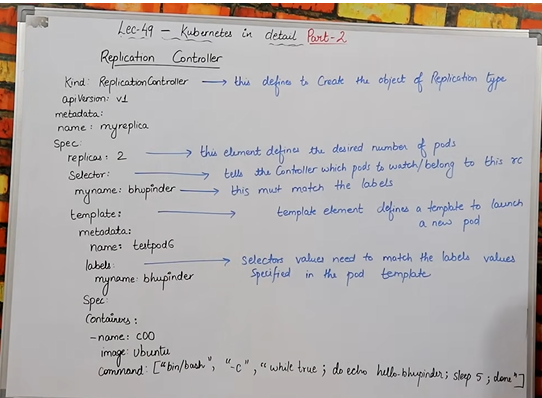 Lec-49 - Kubernetes in detail Part-2
Replication Controller
Kind: ReplicationController → this defines to Create the object of Replication type
apiVersion: v1
metadata:
name: myreplica
Spec:
replicas: 2 → this element defines the desired number of pods
Selector: → tells the Controller which pods to watch/belong to this rc
myname: bhupinder → this must match the labels
template: → template element defines a template to launch
a new pod
metadata:
name: testpod6
labels: → Selectors values need to match the labels values
myname: bhupinder specified in the pod template
Spec:
Containers:
-name: c00
image: Ubuntu
Command: ["bin/bash", "-c", "while true; do echo hello-bhupinder; sleep 5; done"]